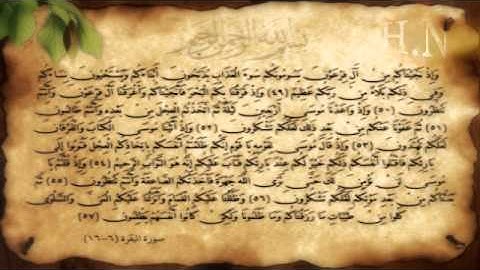 بسم الله الرحمن الرحيم
H.N
وَإِذْ نَجَّيْنَاكُم مِّنْ آلِ فِرْعَوْنَ يَسُومُونَكُمْ سُوءَ الْعَذَابِ يُذَبِّحُونَ أَبْنَاءَكُمْ وَيَسْتَحْيُونَ نِسَاءَكُمْ
وَفِي ذَلِكُم بَلَاءٌ مِّن رَّبِّكُمْ عَظِيمٌ (٤٩) وَإِذْ فَرَقْنَا بِكُمُ الْبَحْرَ فَأَنجَيْنَاكُمْ وَأَغْرَقْنَا آلَ فِرْعَوْنَ وَأَنتُمْ
تَنظُرُونَ (٥٠) وَإِذْ وَاعَدْنَا مُوسَى أَرْبَعِينَ لَيْلَةً ثُمَّ اتَّخَذْتُمُ الْعِجْلَ مِن بَعْدِهِ وَأَنتُمْ ظَالِمُونَ
(٥١) ثُمَّ عَفَوْنَا عَنكُم مِّن بَعْدِ ذَلِكَ لَعَلَّكُمْ تَشْكُرُونَ (٥٢) وَإِذْ آتَيْنَا مُوسَى الْكِتَابَ وَالْفُرْقَانَ
لَعَلَّكُمْ تَهْتَدُونَ (٥٣) وَإِذْ قَالَ مُوسَى لِقَوْمِهِ يَا قَوْمِ إِنَّكُمْ ظَلَمْتُمْ أَنفُسَكُم بِاتِّخَاذِكُمُ الْعِجْلَ فَتُوبُوا إِلَى
بَارِئِكُمْ فَاقْتُلُوا أَنفُسَكُمْ ذَلِكُمْ خَيْرٌ لَّكُمْ عِندَ بَارِئِكُمْ فَتَابَ عَلَيْكُمْ إِنَّهُ هُوَ التَّوَّابُ الرَّحِيمُ (٥٤) وَإِذْ قُلْتُمْ يَا
مُوسَى لَن نُّؤْمِنَ لَكَ حَتَّى نَرَى اللَّهَ جَهْرَةً فَأَخَذَتْكُمُ الصَّاعِقَةُ وَأَنتُمْ تَنظُرُونَ (٥٥) ثُمَّ
بَعَثْنَاكُم مِّن بَعْدِ مَوْتِكُمْ لَعَلَّكُمْ تَشْكُرُونَ (٥٦) وَظَلَّلْنَا عَلَيْكُمُ الْغَمَامَ وَأَنزَلْنَا عَلَيْكُمُ الْمَنَّ وَالسَّلْوَى
كُلُوا مِن طَيِّبَاتِ مَا رَزَقْنَاكُمْ وَمَا ظَلَمُونَا وَلَكِن كَانُوا أَنفُسَهُمْ يَظْلِمُونَ (٥٧)
سورة البقرة (٦-١٦)